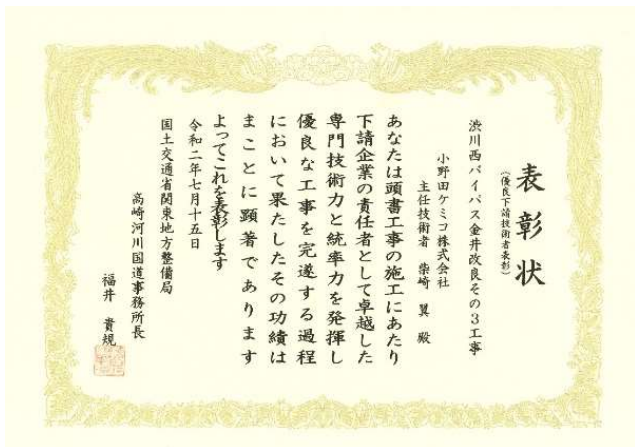 表彰状
(優良下請技術者表彰)
渋川西バイパス金井改良その3工事
小野田ケミコ株式会社
主任技術者 柴崎 翼 殿
あなたは頭書工事の施工にあたり
下請企業の責任者として卓越した
専門技術力と統率力を発揮し
優良な工事を完遂する過程
において果たしたその功績は
まことに顕著であります
よってこれを表彰します
令和二年七月十五日
国土交通省関東地方整備局
高崎河川国道事務所長
福井 貴規